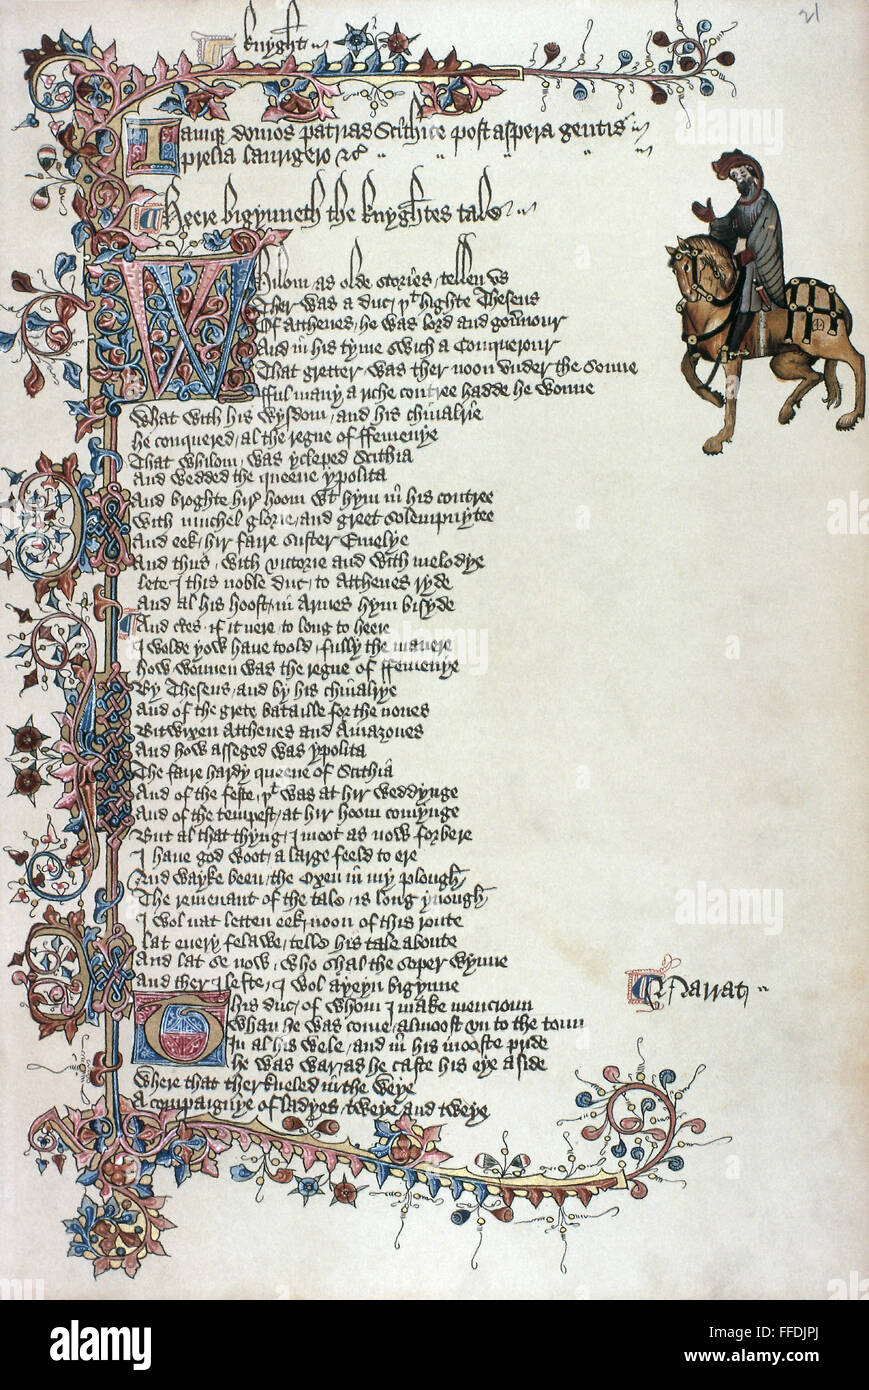 21
knyght
Iamque domos patrias Scithice post aspera gentis
prelia laurigero &c
Heere bigynneth the knyghtes tale
Whilom, as olde stories, tellen us
Ther was a duc, þt highte Theseus
Of Atthenes, he was lord and gou'nour
And in his tyme swich a Conquerour
That gretter, was ther noon under the Sonne
fful many a riche contree hadde he wonne
What with his wysdom, and his chiualrie
he conquered, al the regne of ffemenye
That whilom, was ycleped Scithia
And wedded the queene ypolita
And broghte hir hoom wt hym in his contree
With muchel glorie, and greet solempnytee
And eek, hir faire suster Emelye
And thus, with victorie and with melodye
lete I this noble duc, to Atthenes ryde
And al his hoost, in Armes hym bisyde
And certes, if it nere to long to heere
I wolde yow haue toold, fully the manere
how wonnen was the regne of ffemenye
By Theseus, and by his chiualrye
And of the grete bataille for the nones
Bitwixen Atthenes and Amazones
And how asseged was ypolita
The faire hardy queene of Scithia
And of the feste, þt was at hir weddynge
And of the tempest, at hir hoom comynge
But al that thyng, I moot as now forbere
I haue god woot, a large feeld to ere
And wayke been, the Oxen in my plough
The remenant of the tale, is long ynough
I wol nat letten eek, noon of this route
lat euery felawe, telle his tale aboute
And lat se now, who shal the soper wynne
And ther I lefte, I wol ayeyn bigynne
This duc, of whom I make mencioun
Narrat
Whan he was come, almoost vn to the toun
In al his wele, and in his mooste pride
He was war, as he caste his eye aside
Where that ther kneled in the weye
A compaignye of ladyes, tweye and tweye
alamy
a
alamy
Image ID: FFDJPJ
www.alamy.com